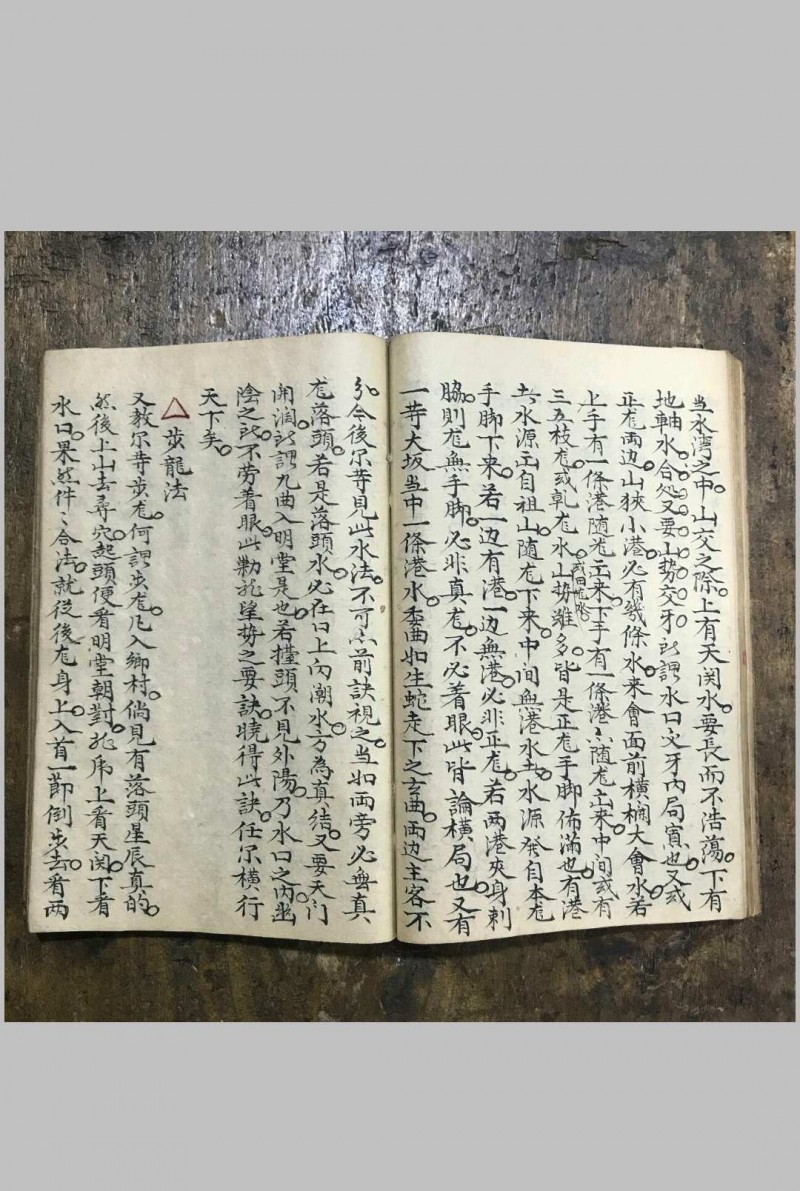 当水湾之中山交之際。上有天関水。要長而不浩蕩。下有
地軸水合処。又要山勢交牙。所謂水口交牙内局賓也。又或
正尨両边山狹小港。必有幾條水来會面前橫欄大會水。若
上手有一條港随尨立来。下手有一條港亦随尨立来。中间或有
三五枝尨或乹尨水山势雖多。皆是正尨手脚佈滿也。有港
或田尨水
共水源正自祖山随尨下来。中间無港水出。水源発自本尨
手脚下来。若一边有港。一边無港。必非正尨。若两港夾身刺
脇。則尨無手脚。必非真尨。不必着眼。此皆論橫局也。又有
一荨大坂当中一條港水。委曲如生蛇走下之玄曲。両边主客不
分。今後尔荨見此水法。不可亦前訣視之。当如両旁必無真
尨落頭。若是落頭水。必在口上內潮水。方為真結。又要天门
開濶。所謂九曲入明堂是也。若擡頭不見外陽。乃水口之内幽
陰之所。不劳着眼。此勘尨望势之要訣。曉得此訣。任尔橫行
天下矣。
△ 步龍法
又教尔荨步尨。何謂步尨。凡入鄉村。倘見有落頭星辰真的。
然後上山去尋穴。起頭便看明堂朝對。尨虎上看天関。下看
水口。果然件〻合法。就従後尨身上入首一節倒步去。看两